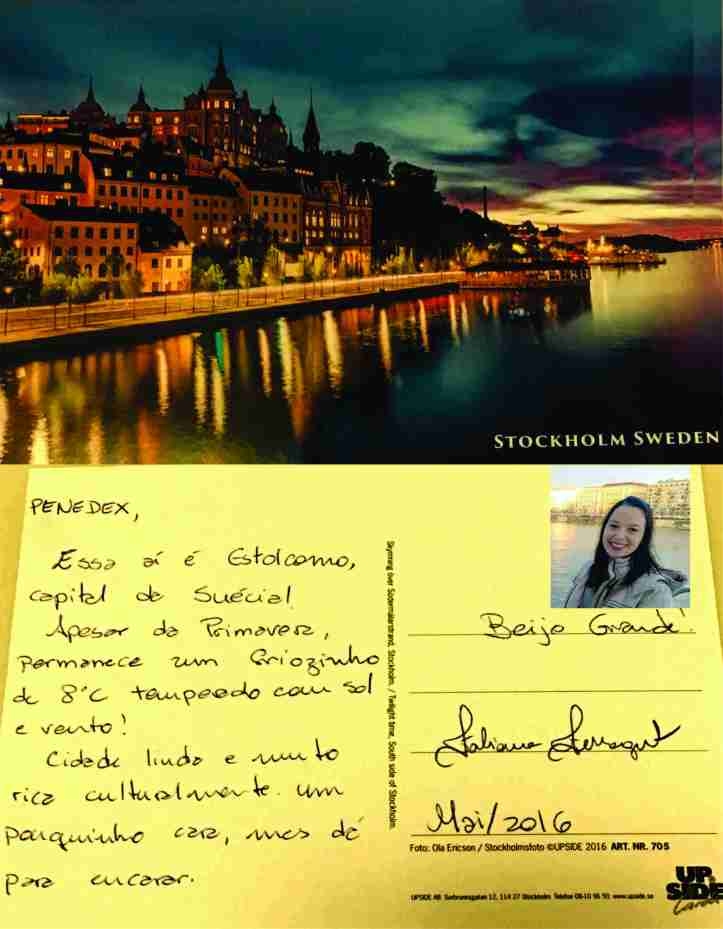 STOCKHOLM SWEDEN
PENEDEX,
Essa aí é Estolcomo,
capital da Suécia!
Apesar da Primavera,
permanece um friozinho
de 8°C temperado com sol
e vento!
Cidade linda e muito
rica culturalmente. um
pouquinho cara, mas dá
para encarar.
Skymning över Södermälarstrand, Stockholm. / Twilight time, South side of Stockholm.
Beijo Grande!
Mai/2016
Foto: Ola Ericson / Stockholmsfoto ©UPSIDE 2016 ART. NR. 705
UPSIDE AB 12, 114 27 Stockholm Telefon 08-10 96 90 www.upside.se
UP
SIDE
Cards